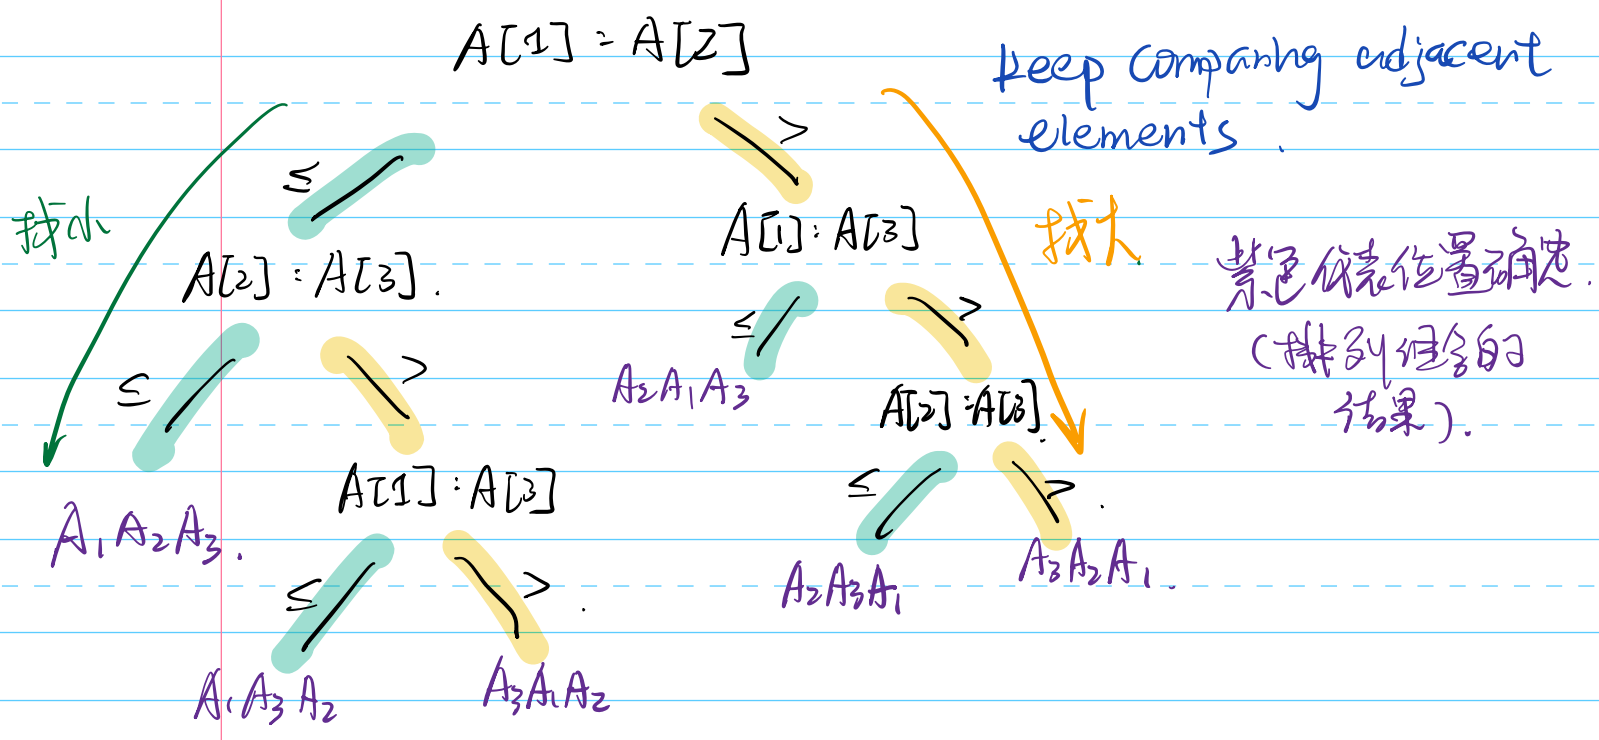 A[1] : A[2]
keep comparing adjacent
elements.
≤
>
找小
A[2] : A[3].
A[1] : A[3]
找大
紫色代表位置确定.
(排列组合的
结果).
≤
>
≤
>
A₂A₁A₃
A[2] : A[3].
A₁A₂A₃.
A[1] : A[3]
≤
>
≤
>
A₂A₃A₁
A₃A₂A₁.
A₁A₃A₂
A₃A₁A₂